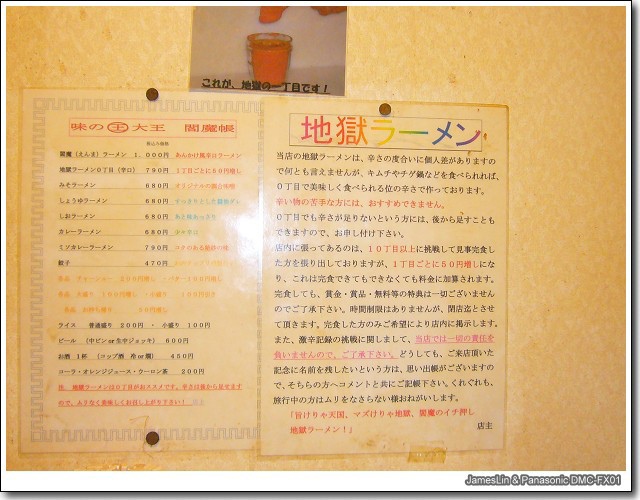 これが、地獄の一丁目です！
味の 王 大王 閻魔帳
税込み価格
閻魔（えんま）ラーメン 1,000円 あんかけ風辛口ラーメン
地獄ラーメン０丁目（辛口） 790円 １丁目ごとに５０円増し
みそラーメン 680円 オリジナルの割合味噌
しょうゆラーメン 680円
しおラーメン 680円
カレーラーメン 680円
ミソカレーラーメン 790円
餃子 470円
ライス 普通盛り 200円 ・ 小盛り 100円
ビール （中ビン or 生中ジョッキ） 600円
お酒 1杯 （コップ酒 冷 or 燗） 450円
コーラ・オレンジジュース・ウーロン茶 200円
地獄ラーメンは０丁目がおススメです。辛さは後から足せます
ので、ムリなく美味しくお召し上がり下さい！ 店主
地獄ラーメン
当店の地獄ラーメンは、辛さの度合いに個人差がありますの
で何とも言えませんが、キムチやチゲ鍋などを食べられれば、
０丁目で美味しく食べられる位の辛さで作っております。
辛い物の苦手な方には、おすすめできません。
０丁目でも辛さが足りないという方には、後から足すことも
できますので、お申し付け下さい。
店内に張ってあるのは、１０丁目以上に挑戦して見事完食し
た方を張り出しておりますが、１丁目ごとに５０円増しにな
り、これは完食できてもできなくても料金に加算されます。
完食しても、賞金・賞品・無料等の特典は一切ございません
のでご了承下さい。時間制限はありませんが、閉店迄とさせ
て頂きます。完食した方のみご希望により店内に掲示します。
また、激辛記録の挑戦に関しまして、当店では一切の責任を
負いませんので、ご了承下さい。どうしても、ご来店頂いた
記念に名前を残したいという方は、思い出帳がございますの
で、そちらの方へコメントと共にご記帳下さい。くれぐれも、
旅行中の方はムリをなさらない様おねがいします。
「旨けりゃ天国、マズけりゃ地獄、閻魔のイチ押し
地獄ラーメン！」
店主
JamesLin & Panasonic DMC-FX01